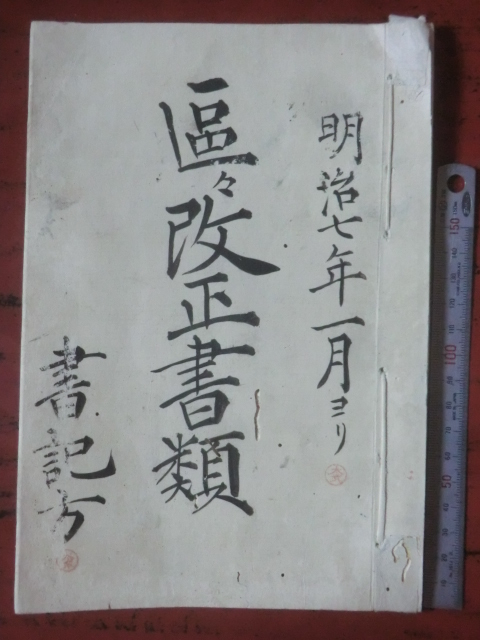 明治七年一月ヨリ
區々改正書類
書記方
150
100
50